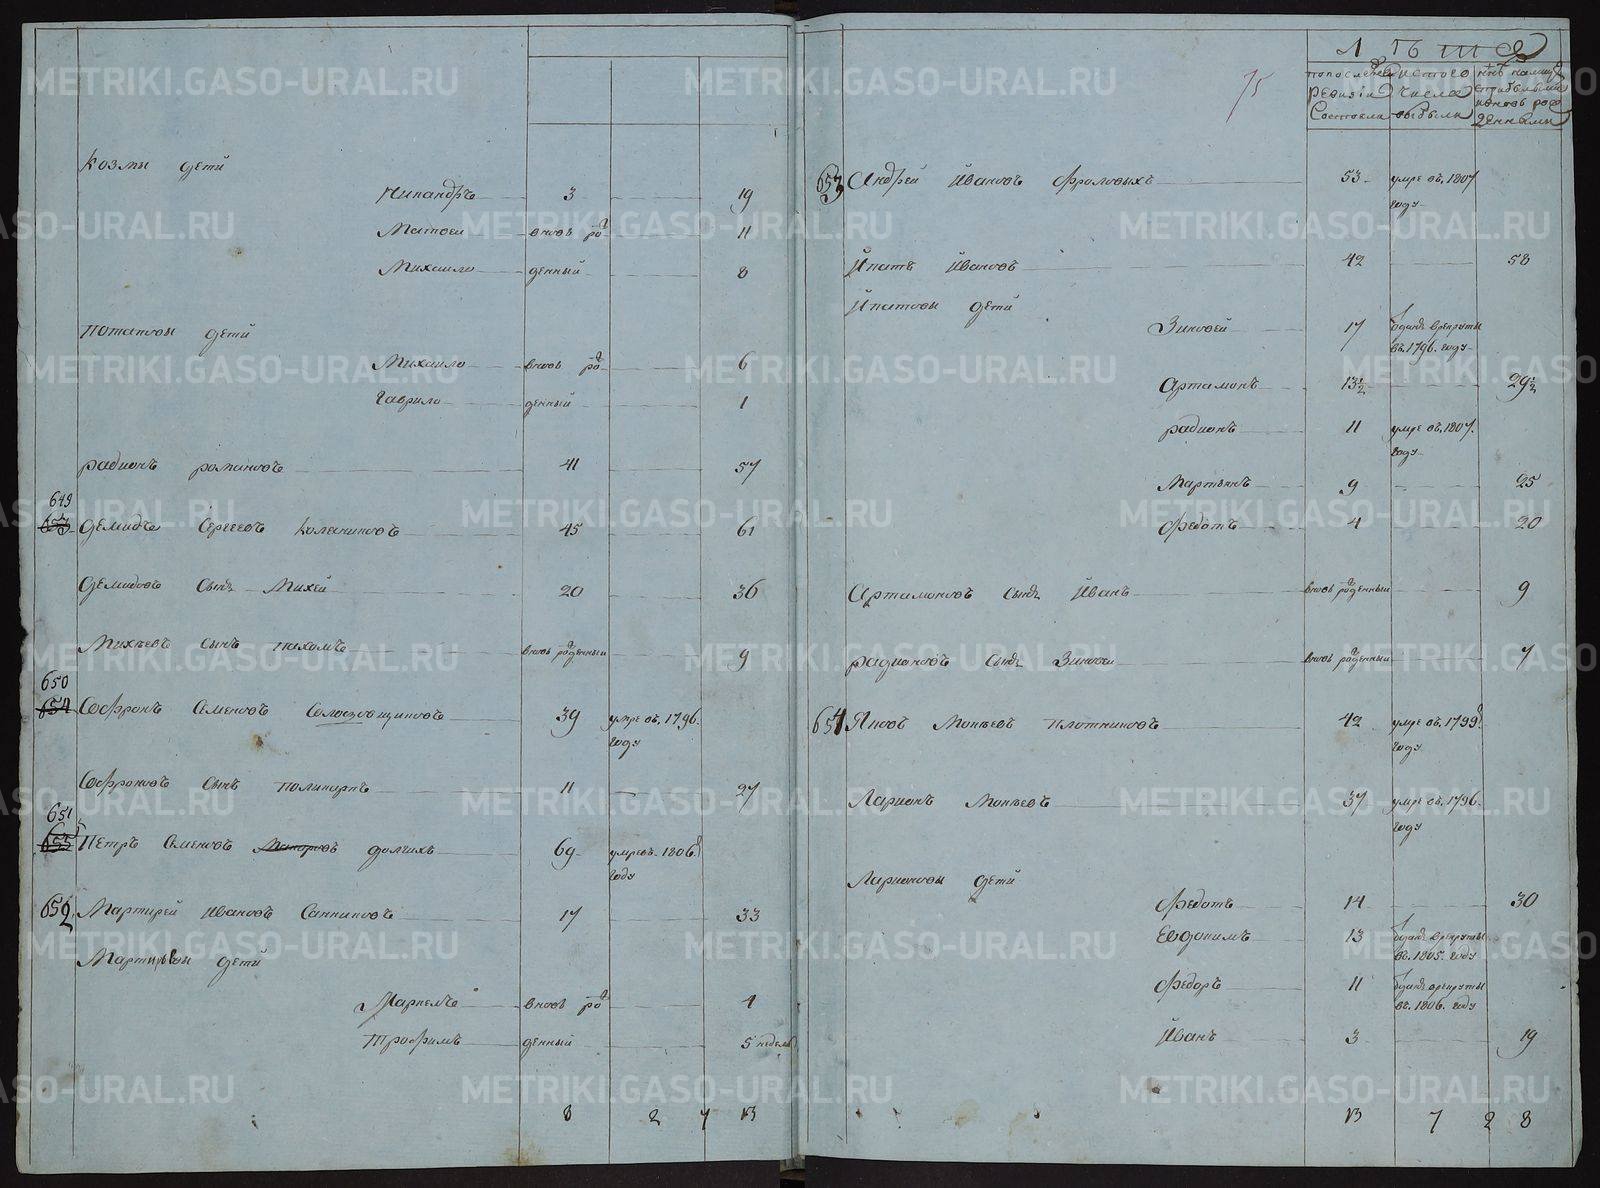 Козмы дети
Никандръ 3 19
Матвеи вновь ро 11
Михаило денный 8
Потаповы дети
Михаило вновь ро 6
Гаврило денный 1
радионъ романовъ 41 57
649
653 демидъ Сергеевъ Колесниковъ 45 61
демидовъ Сынъ Михей 20 36
Михѣевъ Сынъ пахомъ вновь рожденный 9
650
654 Софронъ Семеновъ 39 умре въ 1796.
году
Софроновъ Сынъ поликарпъ 11 27
651
655 Петръ Семеновъ долгихъ 69 умре въ 1806
году
652 Мартирей Ивановъ Санниковъ 17 33
Мартировы дети
Маркелъ вновь ро 4
трофимъ денный 5 недель
8 2 7 13
75
лѣта
по последней
ревизіи
Состояло
изтого
числа
выбыли
нынѣ налицо
сприбылыми
и вновь рож
денными
653 Андрей Ивановъ Фроловыхъ 53 умре въ 1807
году
Ипатъ Ивановъ 42 58
Ипатовы дети
Зиновей 17 отданъ врекруты
въ 1796. году
Артамонъ 13½ 29½
радионъ 11 умре въ 1807.
году
Мартьянъ 9 25
Федотъ 4 20
Артамоновъ Сынъ Иванъ вновь рожденный 9
радионовъ Сынъ Зиновеи вновь рожденный 7
654 Яковъ Мокѣевъ плотниковъ 42 умре въ 1799
году
Ларионъ Мокѣевъ 37 умре въ 1796.
году
Ларионовы дети
Федотъ 14 30
Евдокимъ 13 отданъ врекруты
въ 1805. году
Федоръ 11 отданъ врекруты
въ 1806. году
Иванъ 3 19
13 7 2 8
METRIKI.GASO-URAL.RU